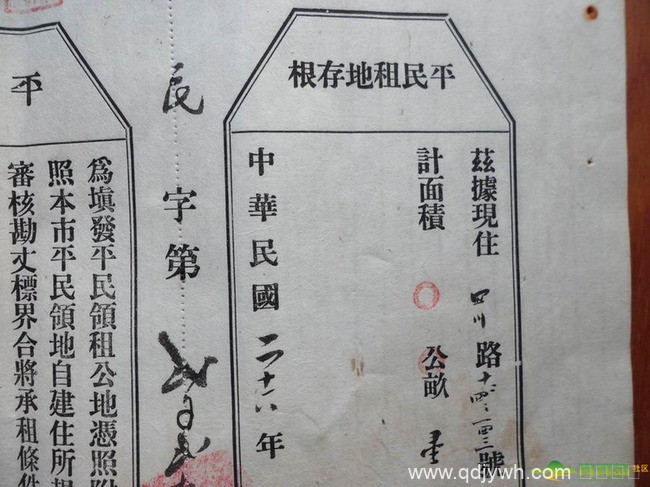 平民租地存根
茲據現住四川路號
計面積公畝
中華民國二十六年
民字第
平
為塡發平民領租公地憑照附
照本市平民領地自建住所規
審核勘丈標界合將承租條件
www.qdjywh.com
社区